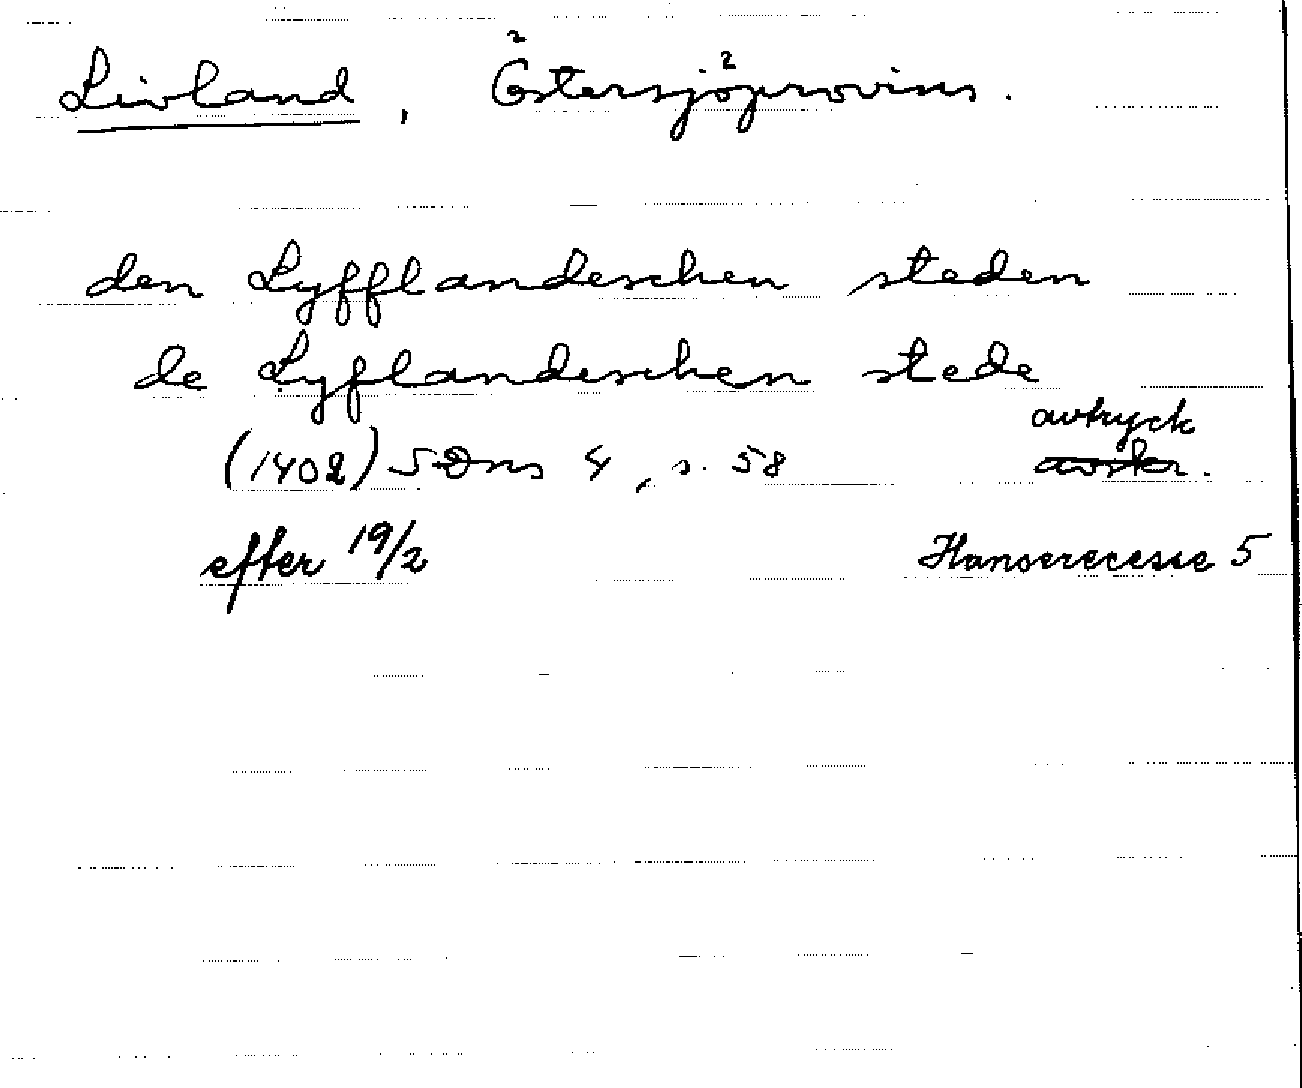 Livland, Östersjöprovins.
den Lyfflandeschen steden
de Lyflandeschen stede
avtryck
(1402) SDns 4, s. 58 avskr.
efter 19/2 Hanserecesse 5